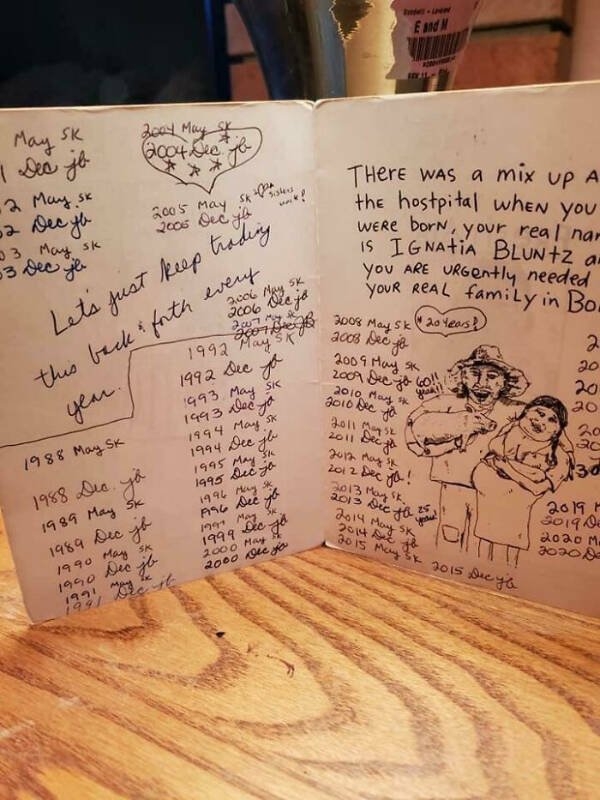 E and M
May SK
1 Dec jb
2 May SK
2 Dec jb
03 May SK
03 Dec jb
2004 May SK
2004 Dec jb
2005 May SK
2005 Dec jb
Let's just keep trading
this back & forth every
year.
2006 May SK
2006 Dec jb
2007 May SK
2007 Dec jb
1988 May SK
1988 Dec. jb
1989 May SK
1989 Dec jb
1990 May SK
1990 Dec jb
1991 May SK
1991 Dec jb
1992 May SK
1992 Dec jb
1993 May SK
1993 Dec jb
1994 May SK
1994 Dec jb
1995 May SK
1995 Dec jb
1996 May SK
1996 Dec jb
1999 May SK
1999 Dec jb
2000 May SK
2000 Dec jb
THERE WAS A mix UP A
the hostpital wHEN you
wERE borN, your real nam
IS IGNAtiA BLUNtZ a
YOU ARE URGENtly needed
YOUR REAL family in Bo
2008 May SK (20 years!)
2008 Dec jb
2009 May SK
2009 Dec jb 60!!
2010 May SK
2010 Dec jb
2011 May SK
2011 Dec jb
2012 May SK
2012 Dec jb!
2013 May SK
2013 Dec jb 25 years!
2014 May SK
2014 Dec jb
2015 May SK 2015 Dec jb
2
20
20
20
20
20
20
2019 M
2019 De
2020 Ma
2020 De